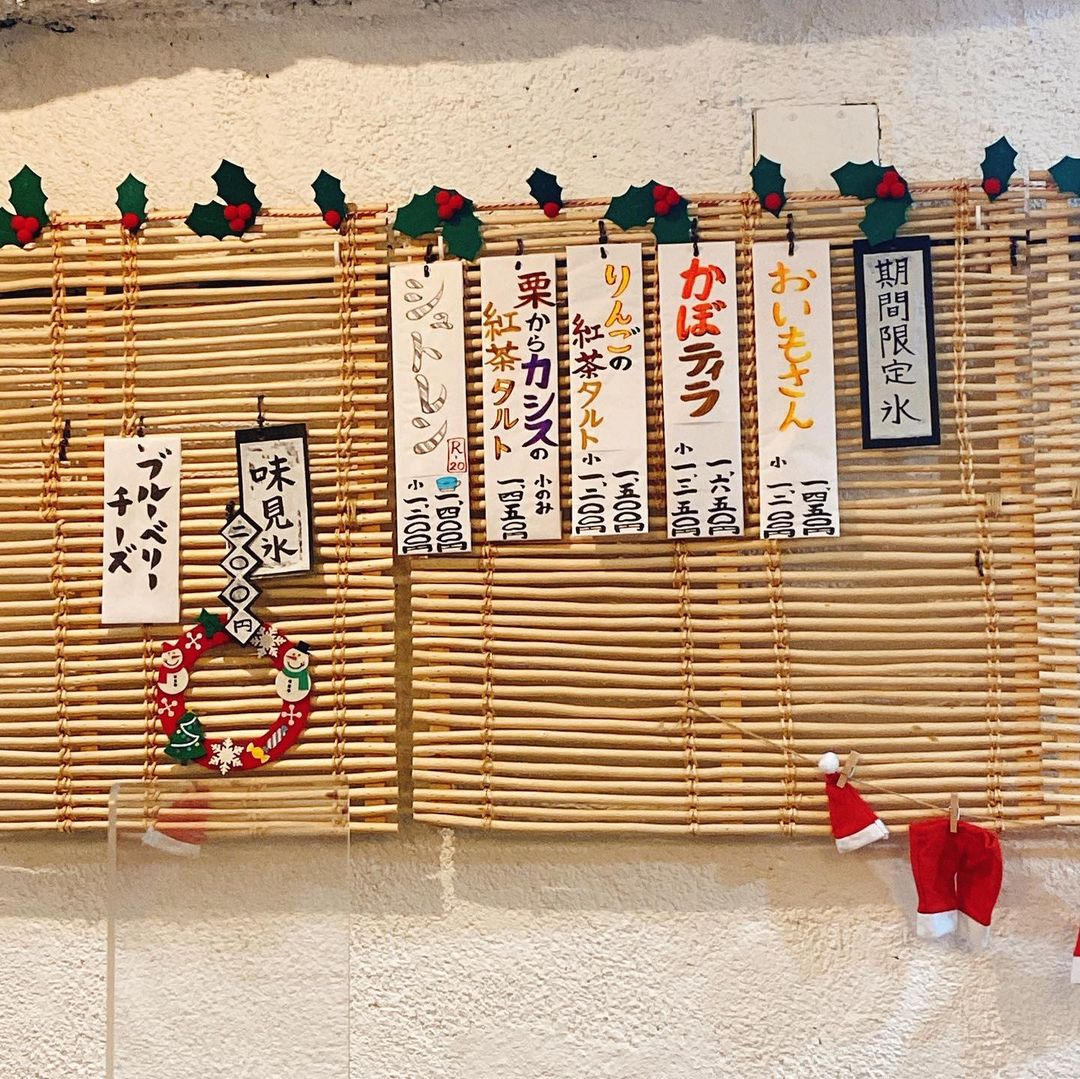 期間限定氷
おいもさん
一、四五〇円
小 一、二〇〇円
かぼティラ
一、六五〇円
小 一、三五〇円
りんごの
紅茶タルト
一、五〇〇円
小 一、二〇〇円
栗からカシスの
紅茶タルト
小のみ
一、四五〇円
シュトレン
R-20
一、四〇〇円
小 一、二〇〇円
味見氷
二〇〇円
ブルーベリー
チーズ